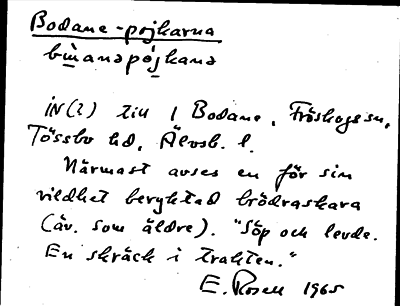 Bodane-pojkarna
bɯ̀anapójkana
IN(?) till 1 Bodane, Fröskogs sn,
Tössbo hd, Älvsb. l.
Närmast avses en för sin
vildhet beryktad brödraskara
(äv. som äldre). "Söp och levde.
En skräck i trakten."
E. Rosell 1965